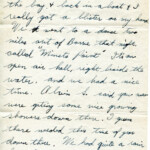 the bay & back in a boat & I
really got a blister on my hand
We went to a dance two
miles out of Barre that night
called "Minute Point" Its an
open air hall, right beside the
water, and we had a nice
time. Alvin he said you
were giving some one growing
showers down there. I guess
there needed this time of year
down there. We had quite a rain